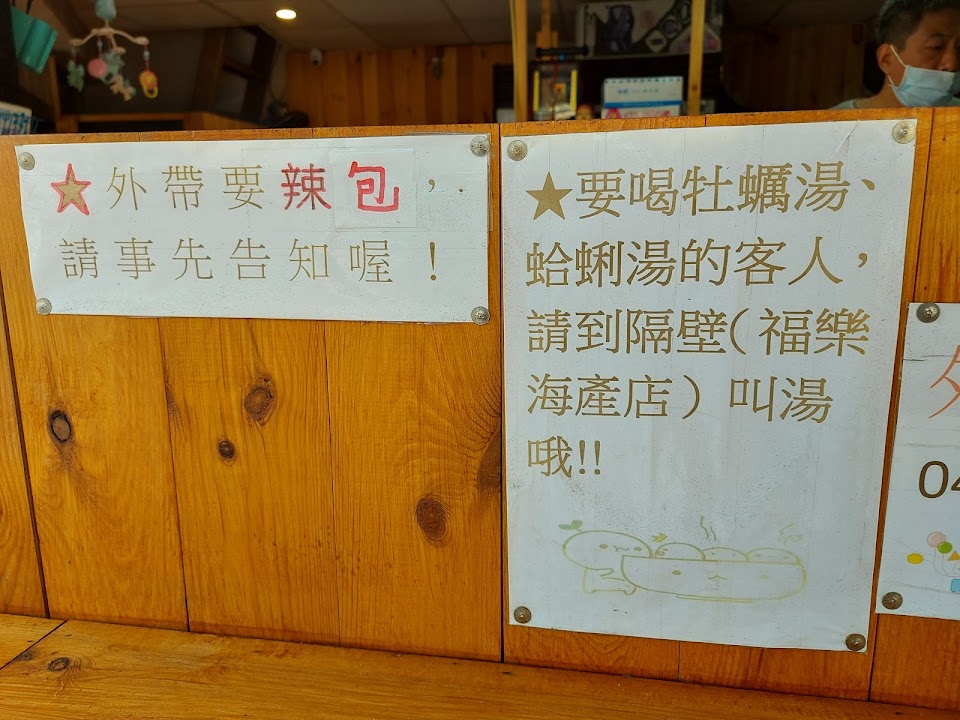 ★外帶要辣包，
請事先告知喔！
★要喝牡蠣湯、
蛤蜊湯的客人，
請到隔壁(福樂
海產店) 叫湯
哦!!
04